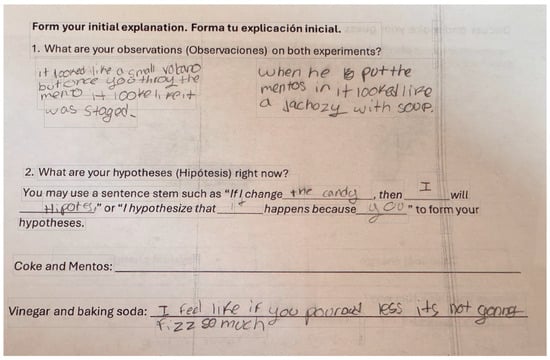 Form your initial explanation. Forma tu explicación inicial.
1. What are your observations (Observaciones) on both experiments?
it looked like a small volcano
but once you throw the
mento it looke like it
was staged.
when he is put the
mentos in it looked like
a Jachozy with soup.
2. What are your hypotheses (Hipótesis) right now?
You may use a sentence stem such as "If I change the candy, then I will
Hipotes," or "I hypothesize that it happens because you" to form your
hypotheses.
Coke and Mentos:
Vinegar and baking soda: I feel like if you pourod less its not gonna
fizz so much